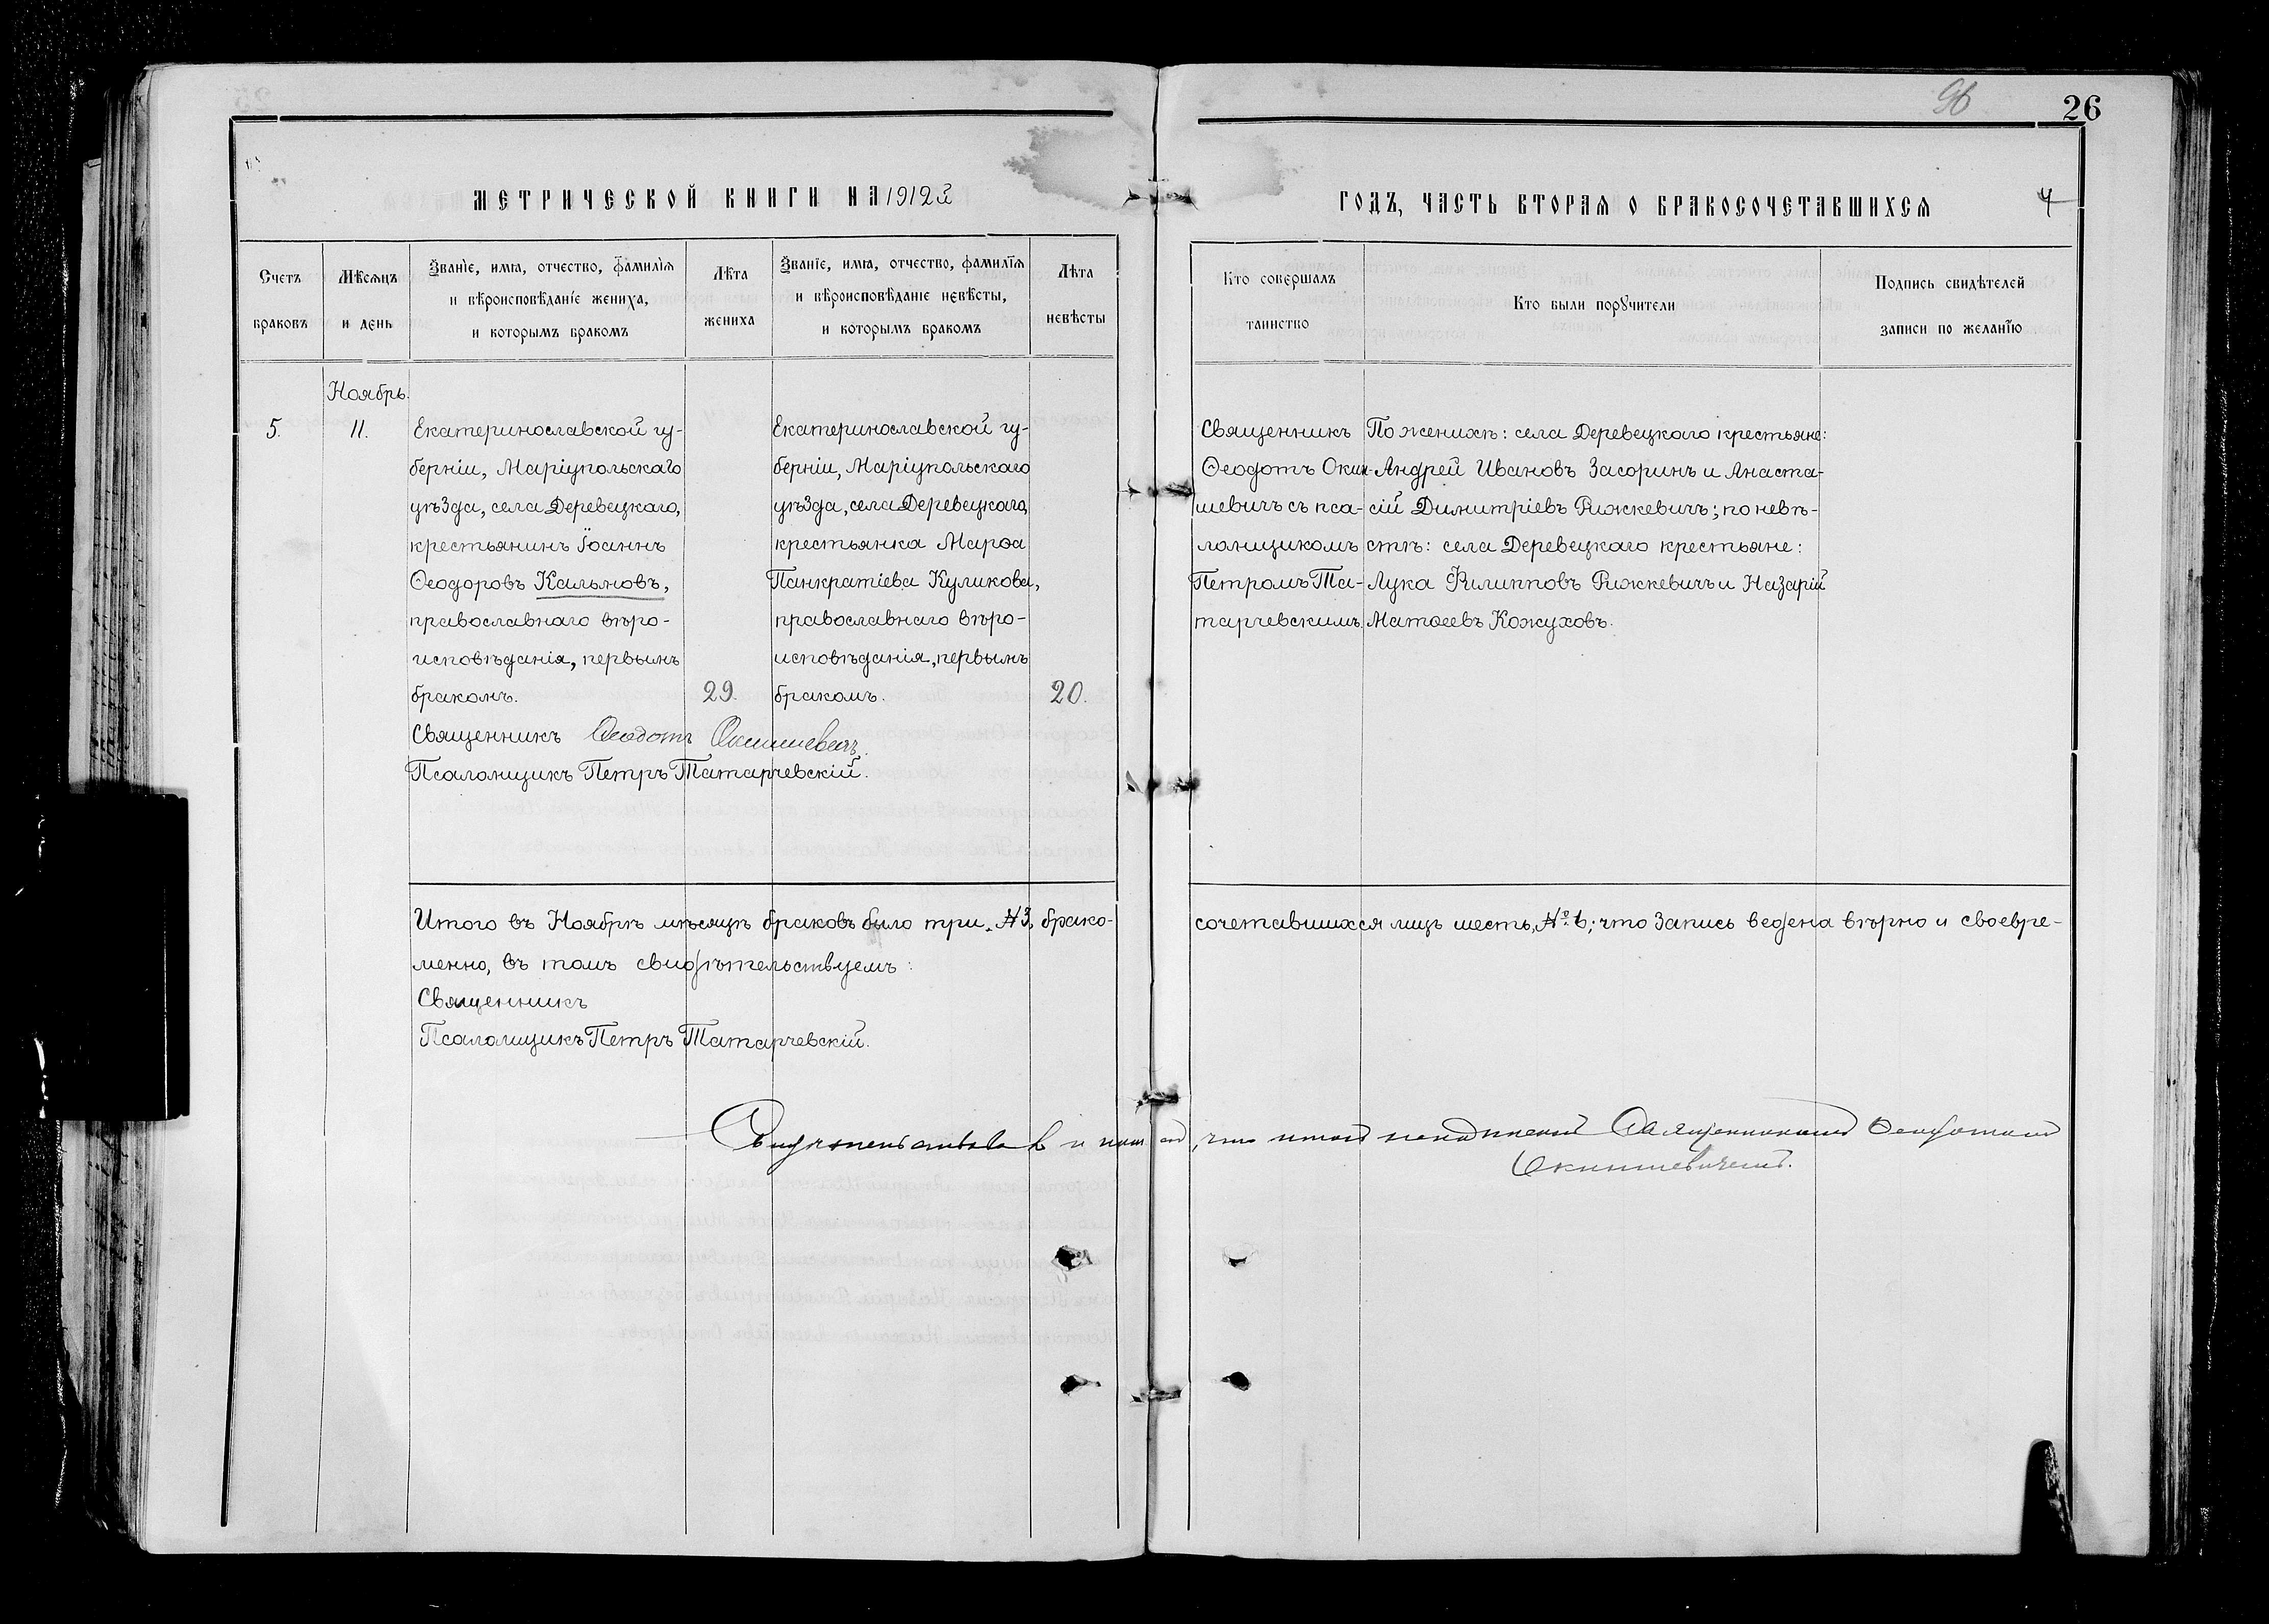 96
26
МЕТРИЧЕСКОЙ КНИГИ НА 1912й
ГОДЪ, ЧАСТЬ ВТОРАЯ О БРАКОСОЧЕТАВШИХСЯ
4
Счетъ
браковъ
Мѣсяцъ
и день
Званіе, имя, отчество, фамилія
и вѣроисповѣданіе жениха,
и которымъ бракомъ
Лѣта
жениха
Званіе, имя, отчество, фамилія
и вѣроисповѣданіе невѣсты,
и которымъ бракомъ
Лѣта
невѣсты
Кто совершалъ
таинство
Кто были поручители
Подпись свидѣтелей
записи по желанію
Ноябрь.
5.
11.
Екатеринославской гу-
берніи, Маріупольскаго
уѣзда, села Деревецкаго,
крестьянинъ Іоаннъ
Ѳеодоровъ Кальновъ,
православнаго вѣро-
исповѣданія, первымъ
бракомъ.
29.
Екатеринославской гу-
берніи, Маріупольскаго
уѣзда, села Деревецкаго,
крестьянка Марѳа
Панкратіева Куликова,
православнаго вѣро-
исповѣданія, первымъ
бракомъ.
20.
Священникъ Ѳеодотъ Окиншевичъ.
Псаломщикъ Петръ Татарчевскій.
Священникъ
Ѳеодотъ Окин-
шевичъ съ пса-
ломщикомъ
Петромъ Та-
тарчевскимъ.
По женихѣ: села Деревецкаго крестьяне:
Андрей Ивановъ Засоринъ и Анаста-
сій Димитріевъ Рижкевичъ; по невѣ-
стѣ: села Деревецкаго крестьяне:
Лука Филипповъ Рижкевичъ и Назарій
Матѳеевъ Кожуховъ.
Итого въ Ноябрѣ мѣсяцѣ браковъ было три, № 3, брако-
сочетавшихся лицъ шесть, № 6; что запись ведена вѣрно и своевре-
менно, въ томъ свидѣтельствуемъ:
Священникъ
Псаломщикъ Петръ Татарчевскій.
что итогъ неподписанъ Священникомъ Ѳеодотомъ
Окиншевичемъ.